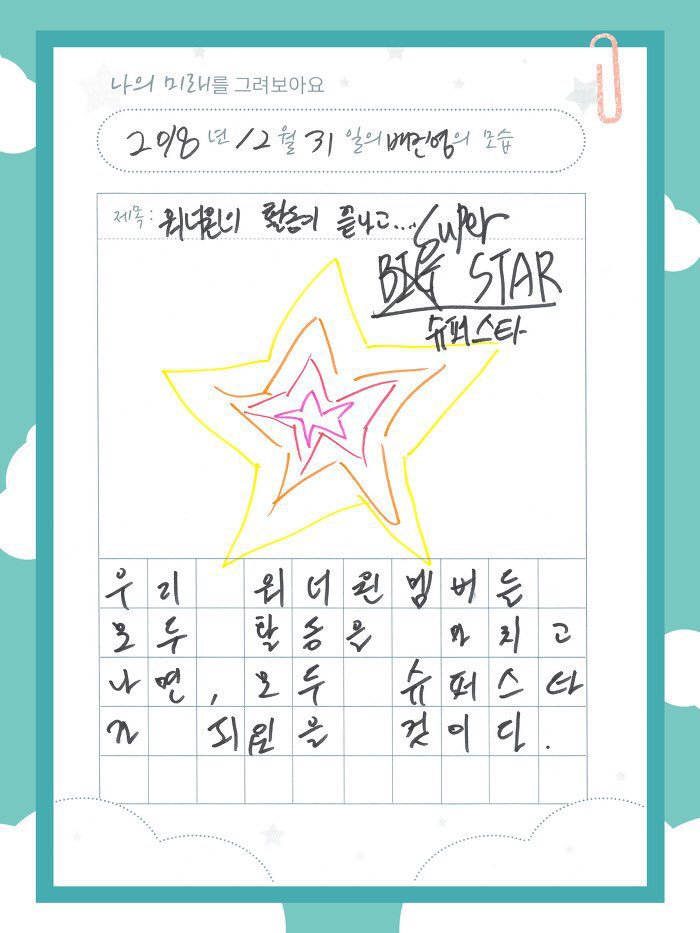 나의 미래를 그려보아요
2018년 12월 31일의 배진영의 모습
제목: 워너원의 활동이 끝나고...
Super
BIG STAR
슈퍼스타
우리 워너원멤버들
모두 활동을 마치고
나면, 모두 슈퍼스타
가 것이다.